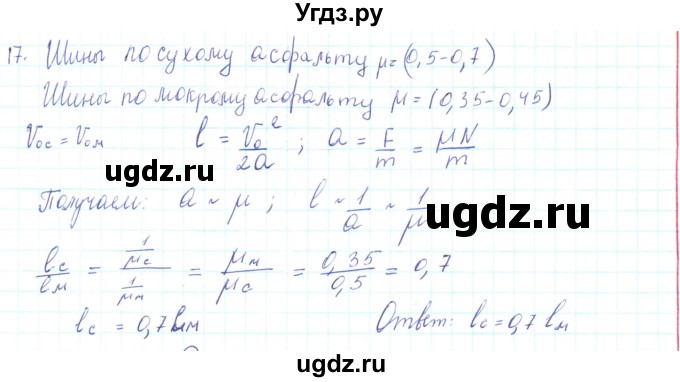 Угдз.ру
17. Шины по сухому асфальту μ=(0,5-0,7)
Шины по мокрому асфальту μ=(0,35-0,45)
V₀с = V₀м l = V₀²/2a ; a = F/m = μN/m
ugdz.ru
Получаем: a ~ μ ; l ~ 1/a ~ 1/μ
ugdz.ru
lс/lм = (1/μс)/(1/μм) = μм/μс = 0,35/0,5 = 0,7
ugdz.ru
lс = 0,7 lм Ответ: lс = 0,7 lм
ugdz.ru